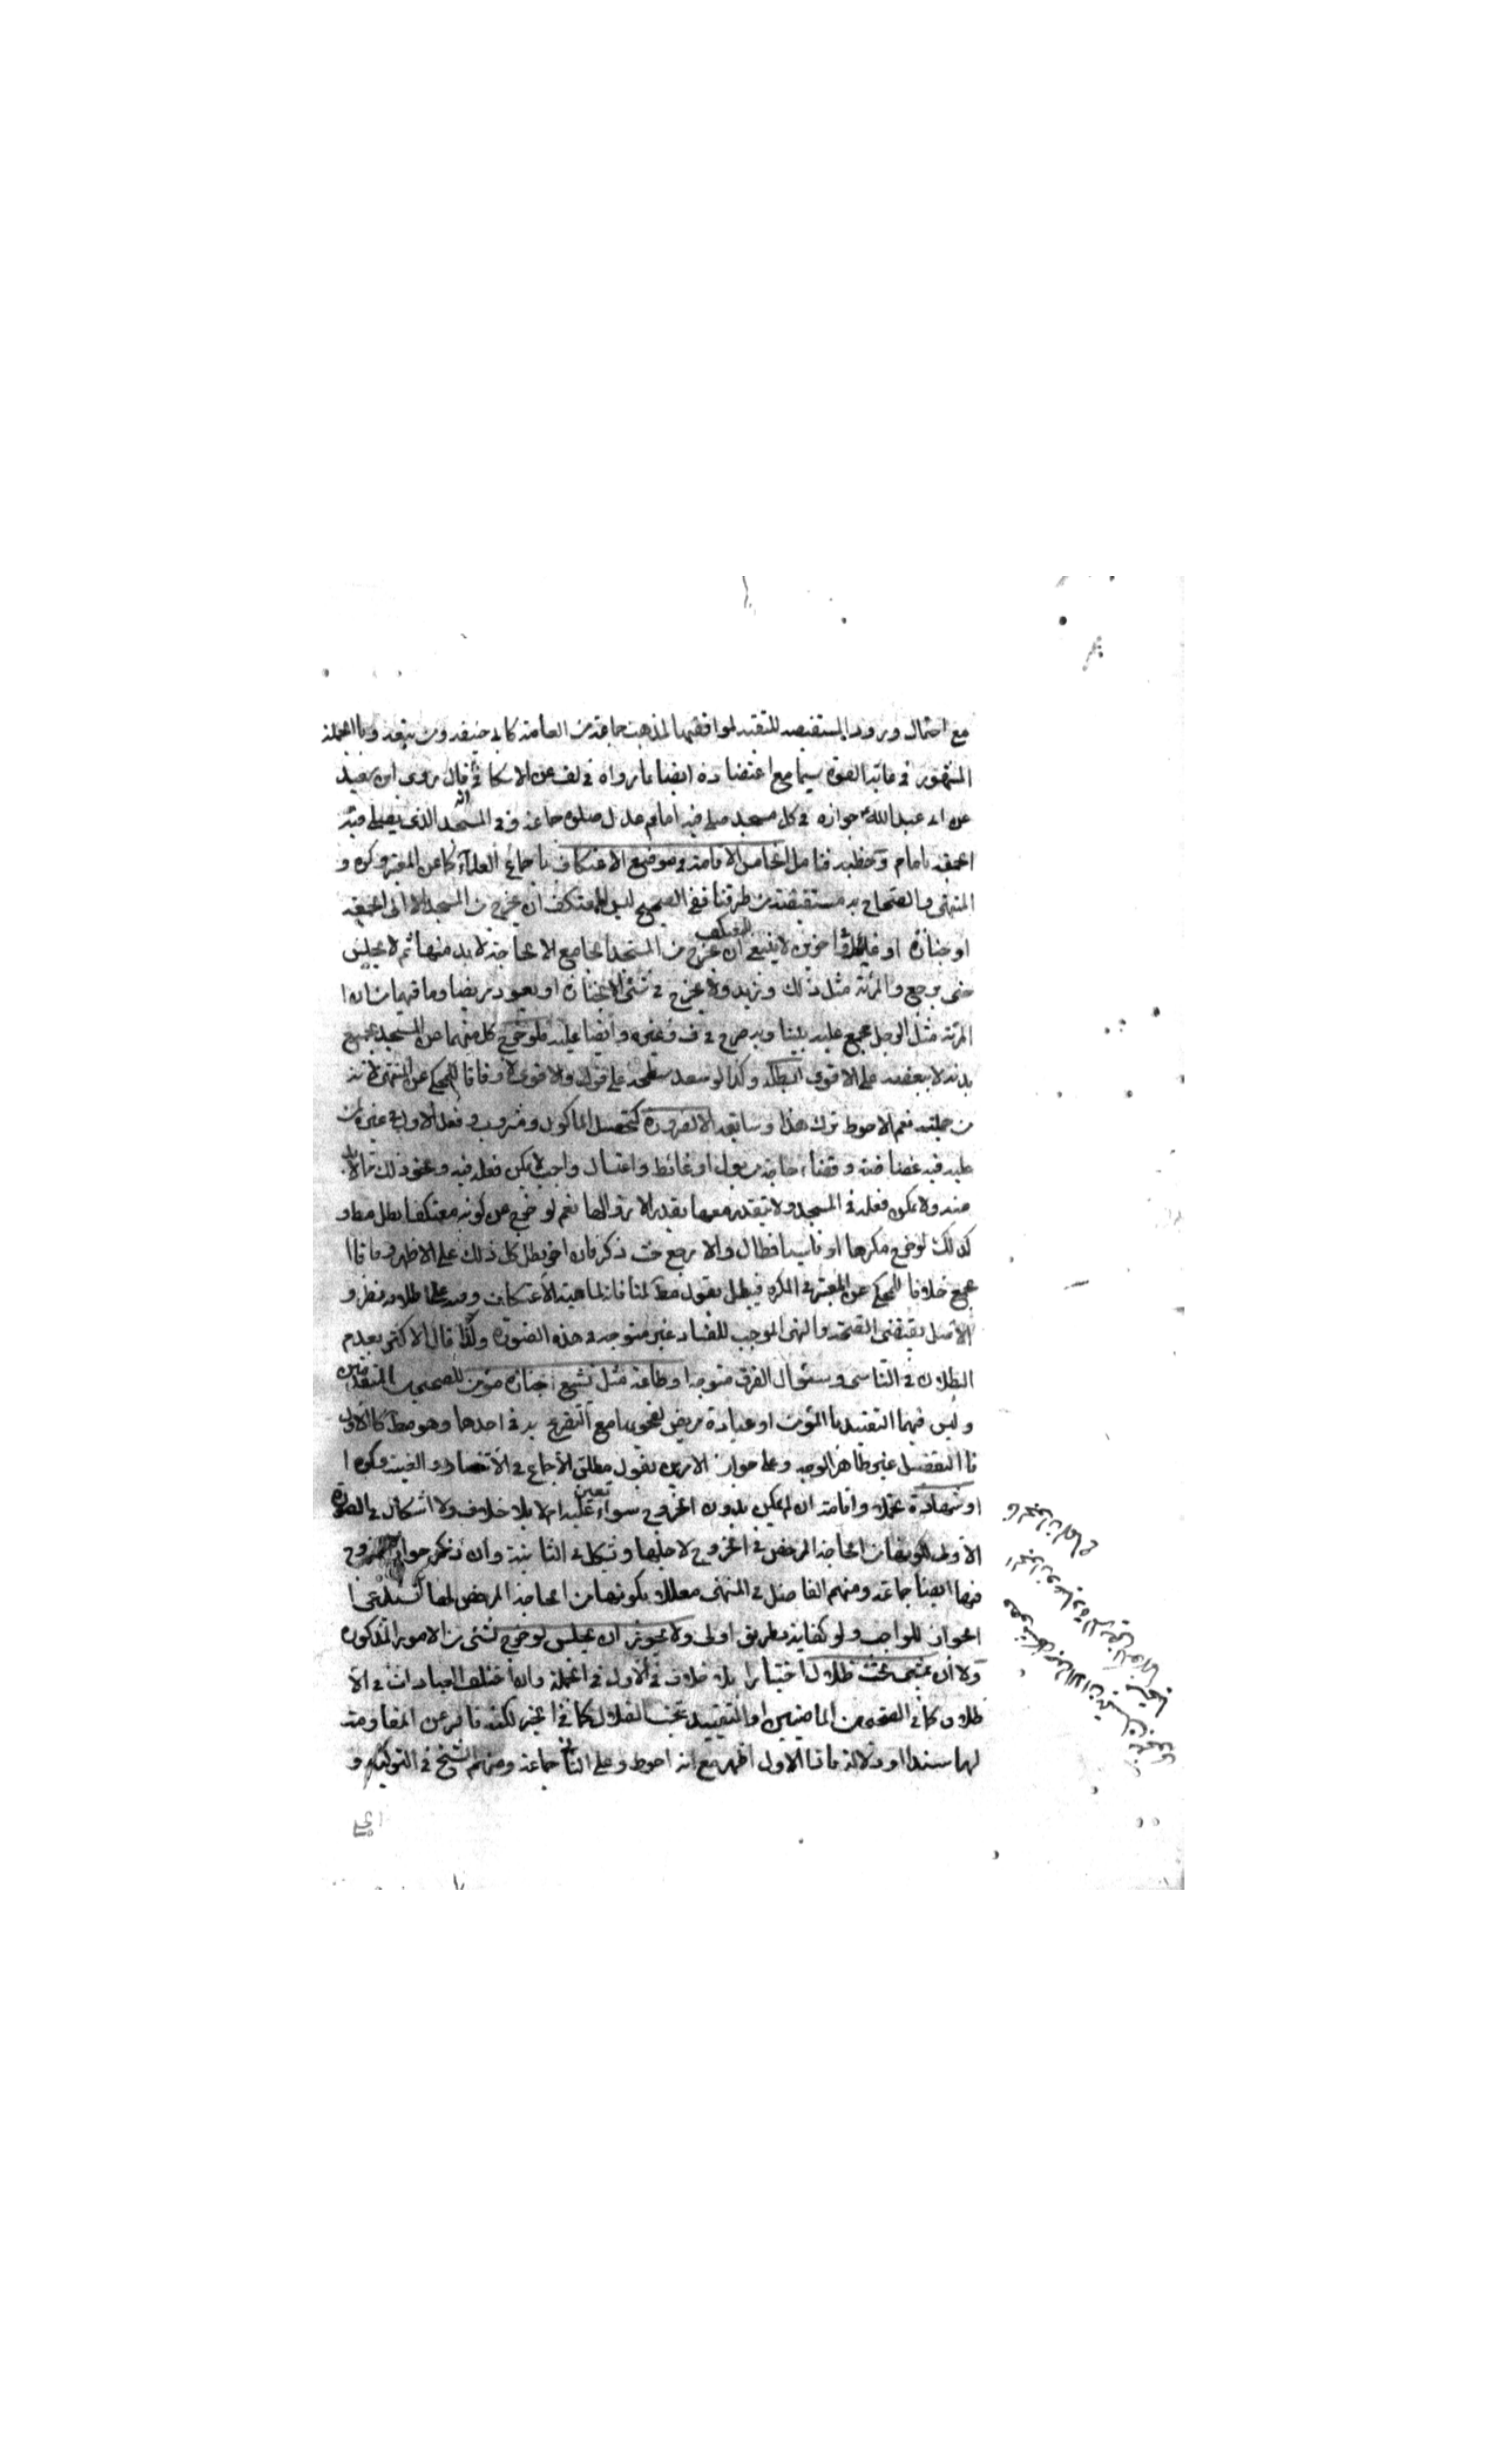 مع احتمال ورود المستفيضه للتقيه لموافقتها لمذهب جماعة من العامة كابي حنيفه ومن تبعه وبالجملة
المشهور في غاية القوة سيما مع اعتضاده ايضا بما رواه في لف عن الاسكافي قال روى ابن سعيد
عن ابي عبد الله جوازه في كل مسجد صلى فيه امام عدل صلوة جماعة وفي المسجد الذي يصلى فيه
الجمعة بامام وخطبه فتامل الخامس الاقامة في موضع الاعتكاف باجماع العلماء كما عن المعتبر وكره و
المنتهى والصحاح به مستفيضة من طرقنا ففي الصحيح ليس للمعتكف ان يخرج من المسجد الا الى الجمعة
او جنازة او غايط وآخرين لا ينبغي للمعتكف ان يخرج من المسجد الجامع الا لحاجة لا بد منها ثم لا يجلس
حتى يرجع والمرئة مثل ذلك وزيد ولا يخرج في شئ الا لجنازة او يعود مريضا وما فيهما من ان
المرئة مثل الرجل مجمع عليه بيننا وبه صرح في ف وغيره وايضا عليه فلو خرج كل منهما من المسجد بجميع
بدنه لا ببعضه على الاقوى بطل وكذا لو صعد سطحه على قول والاقوى لا وفاقا للمحكي عن المنتهى لانه
من جملته نعم الاحوط ترك هذا وسابقه الا لضرورة كتحصيل الماكول ومشروب وفعل الاول في غيره لمن
عليه فيه غضاضة وقضاء حاجة من بول او غائط واغتسال واجب لا يمكن فعله فيه ونحو ذلك مما لا بد
منه ولا يمكن فعله في المسجد ولا يتقدر معها بقدر الا بزوالها نعم لو خرج عن كونه معتكفا بطل مط و
كذلك لو خرج مكرها او ناسيا فطال والا رجع حيث ذكر فان اخر بطل كل ذلك على الاظهر وفاقا
لجمع خلافا للمحكي عن المعتبر في المكره فيبطل بقول مط لمنافاته لماهية الاعتكاف وفيه على اطلاقه نظر و
الاصل يقتضي الصحة والنهي الموجب للفساد غير متوجه في هذه الصورة ولذا قال الاكثر بعدم
البطلان في الناسي وسئوال الفرق متوجه او طاعة مثل تشيع جنازة مؤمن للصحيحين المتقدمين
وليس فيهما التقييد بالمؤمن او عيادة مريض لفحويهما مع التصريح به في احدها وهو مط كالاول
فالتفصيل غير ظاهر الوجه وعلى جواز الامرين بقول مطلق الاجماع في الانتصار والغنية وكره
او شهادة تحملا واقامة ان لم يمكن بدون الخروج سواء تعين عليه ام لا بلا خلاف ولا اشكال في الصورة
الاولى لكونها من الحاجة المرخص في الخروج لاجلها ويشكل في الثانية وان ذكر جواز الخروج
فيها ايضا جماعة ومنهم الفاضل في المنتهى معللا بكونها من الحاجة المرخص لها
الجواز للواجب ولو كفاية بطريق اولى ولا يجوز ان يجلس لو خرج لشئ من الامور المذكورة
ولا ان يمشي تحت ظلال اختيارا بلا خلاف في الاول في الجملة وان اختلف العبارات في الا
طلاق كما في الصحيحين الماضيين او التقييد بتحت الظلال كما في الخبر لكنه قاصر عن المقاومة
لها سندا او دلالة فاذا الاول اظهر مع انه احوط وعلى الثاني جماعة ومنهم الشيخ في